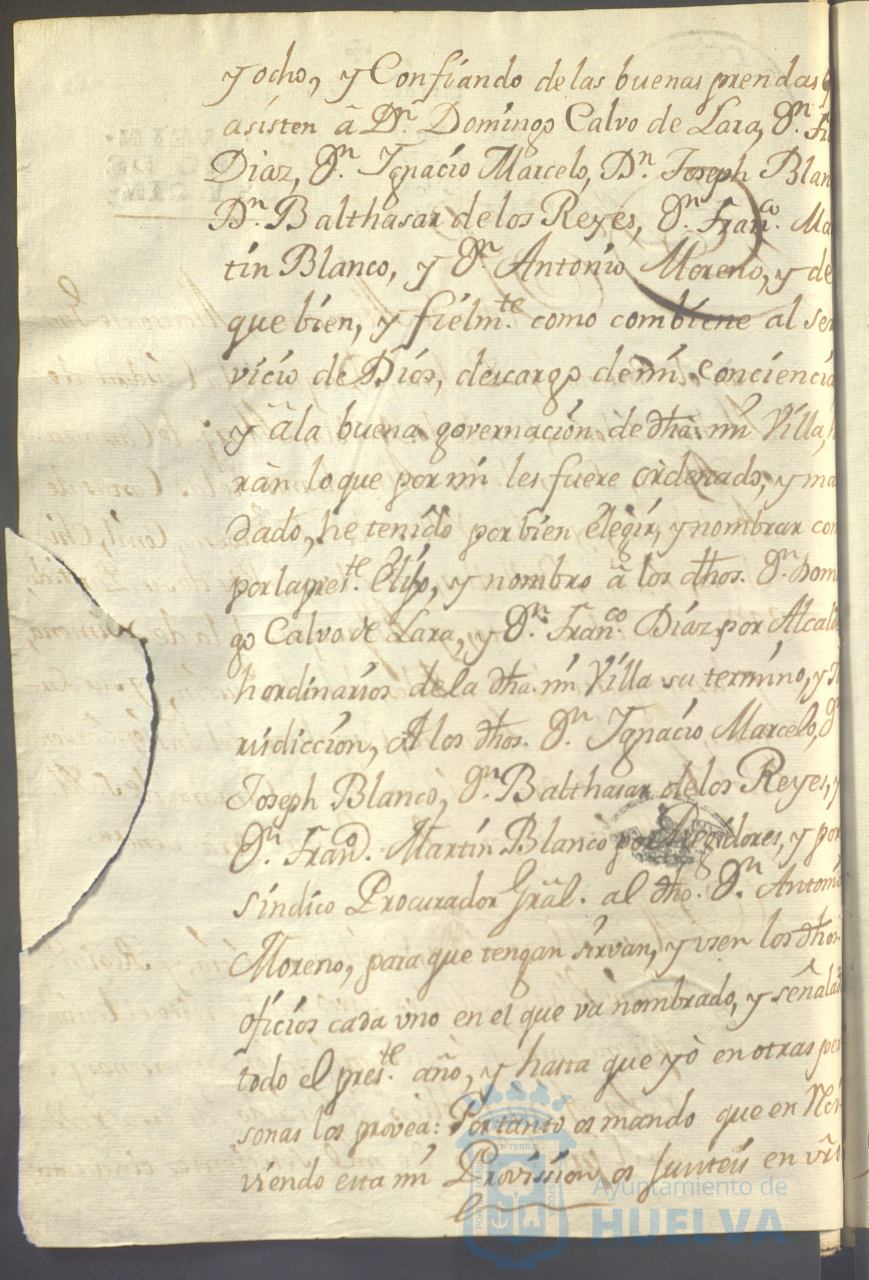 y ocho, y Confiando de las buenas prendas q
asisten â Dn. Domingo Calvo de Lara, Dn. Fra
Diaz, Dn. Ignacio Marcelo, Dn. Joseph Blan
Dn. Balthasar de los Reyes, Dn. Franco. Ma
tin Blanco, y Dn. Antonio Moreno, y de
que bien, y fielmte. como combiene al ser
vicio de Dios, descargo de mi conciencia
y â la buena governacion de dha. mi Villa, h
ràn lo que por mi les fuere ordenado, y ma
dado, he tenido por bien elegir, y nombrar com
por la preste. Elijo, y nombro â los dhos. Dn. Dom
go Calvo de Lara, y Dn. Franco. Diaz por Alcald
hordinarios de la dha. mi Villa su termino, y J
risdiccion, A los dhos. Dn. Ignacio Marcelo, Dn
Joseph Blanco, Dn. Balthasar de los Reyes, y
Dn. Franco. Martin Blanco por Regidores, y por
Sindico Procurador Grâl. al dho. Dn. Antonio
Moreno, para que tengan sirvan, y usen los dhos
oficios cada uno en el que và nombrado, y señalad
todo el preste. año, y hasta que yò en otras per
sonas los provea: Portanto os mando que en
viendo esta mi Provision os Junteis en vrô
Ayuntamiento de
HUELVA